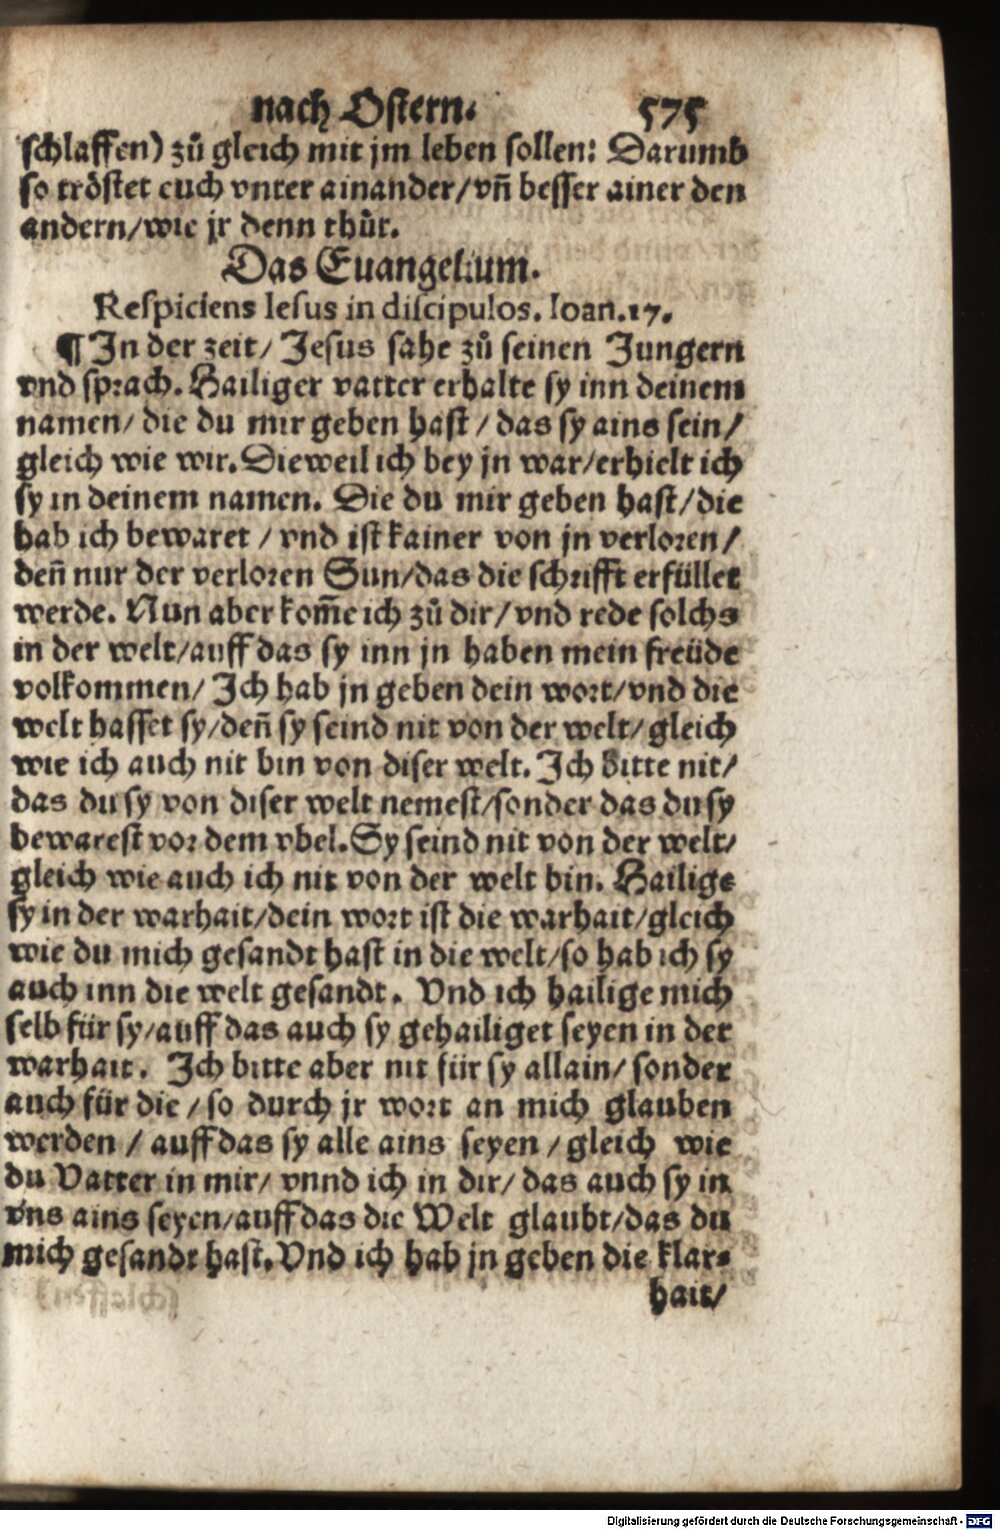 nach Ostern. 575
schlaffen) zů gleich mit jm leben sollen: Darumb
so tröstet euch vnter ainander/vn̄ besser ainer den
andern/wie jr denn thůt.
Das Euangelium.
Respiciens Iesus in discipulos. Ioan.17.
¶ In der zeit/ Jesus sahe zů seinen Jungern
vnd sprach. Hailiger vatter erhalte sy inn deinem
namen/ die du mir geben hast / das sy ains sein/
gleich wie wir. Dieweil ich bey jn war/erhielt ich
sy in deinem namen. Die du mir geben hast/die
hab ich bewaret / vnd ist kainer von jn verloren/
den̄ nur der verloren Sun/das die schrifft erfüllet
werde. Nun aber kom̄e ich zů dir/vnd rede solchs
in der welt/auff das sy inn jn haben mein freüde
volkommen/ Ich hab jn geben dein wort/vnd die
welt hasset sy/den̄ sy seind nit von der welt/gleich
wie ich auch nit bin von diser welt. Ich bitte nit/
das du sy von diser welt nemest/sonder das du sy
bewarest vor dem vbel. Sy seind nit von der welt/
gleich wie auch ich nit von der welt bin. Hailige
sy in der warhait/dein wort ist die warhait/gleich
wie du mich gesandt hast in die welt/so hab ich sy
auch inn die welt gesandt. Vnd ich hailige mich
selb für sy/auff das auch sy gehailiget seyen in der
warhait. Ich bitte aber nit für sy allain/ sonder
auch für die / so durch jr wort an mich glauben
werden / auff das sy alle ains seyen /gleich wie
du Vatter in mir/ vnnd ich in dir/ das auch sy in
vns ains seyen/auff das die Welt glaubt/das du
mich gesandt hast. Vnd ich hab jn geben die klar-
hait/
Digitalisierung gefördert durch die Deutsche Forschungsgemeinschaft - DFG